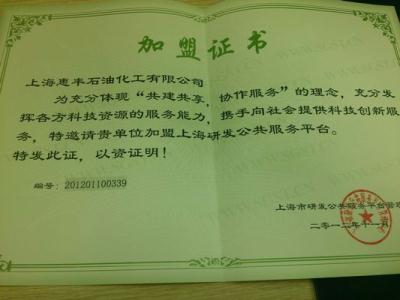 加盟证书
上海惠丰石油化工有限公司
为充分体现“共建共享，协作服务”的理念，充分发
挥各方科技资源的服务能力，携手向社会提供科技创新服
务，特邀请贵单位加盟上海研发公共服务平台。
特发此证，以资证明！
编号：201201100339
上海市研发公共服务平台管理
二零一二年十一月